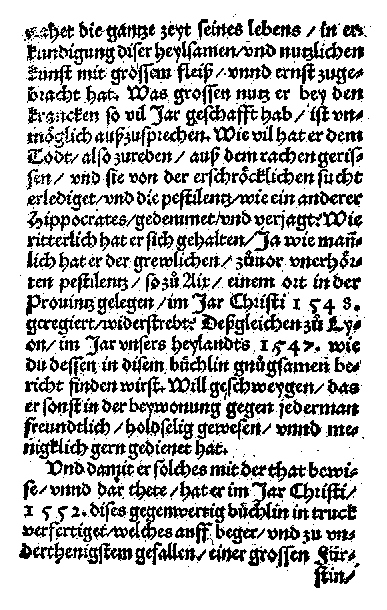 nahet die gantze zeyt seines lebens / in er⸗
kundigung diser heylsamen / vnd nutzlichen
kunst mit grossem fleiß / vnnd ernst zuge⸗
bracht hat. Was grossen nutz er bey den
krancken so vil Jar geschafft hab / ist vn⸗
möglich außzusprechen. Wie vil hat er dem
Todt / also zureden / auß dem rachen geris⸗
sen / vnd sie von der erschröcklichen sucht
erlediget / vnd die pestilentz / wie ein anderer
Hippocrates / gedemmet / vnd verjagt? Wie
ritterlich hat er sich gehalten / Ja wie mañ⸗
lich hat er der grewlichen / zůuor vnerhör⸗
ten pestilentz / so zů Aix / einem ort in der
Prouintz gelegen / im Jar Christi 1546.
geregiert / widerstrebt? Deßgleichen zů Ly⸗
on / im Jar vnsers heylandts 1547. wie
du dessen in disem büchlin gnůgsamen be⸗
richt finden wirst. Will geschweygen / das
er sonst in der beywonung gegen jederman
freundtlich / holdselig gewesen / vnnd me⸗
nigklich gern gedienet hat.
Vnd damit er solches mit der that bewi⸗
se / vnnd dar thete / hat er im Jar Christi /
1552. dises gegenwertig büchlin in truck
verfertiget / welches auff beger / vnd zu vn⸗
derthenigstem gefallen / einer grossen Für⸗
stin /